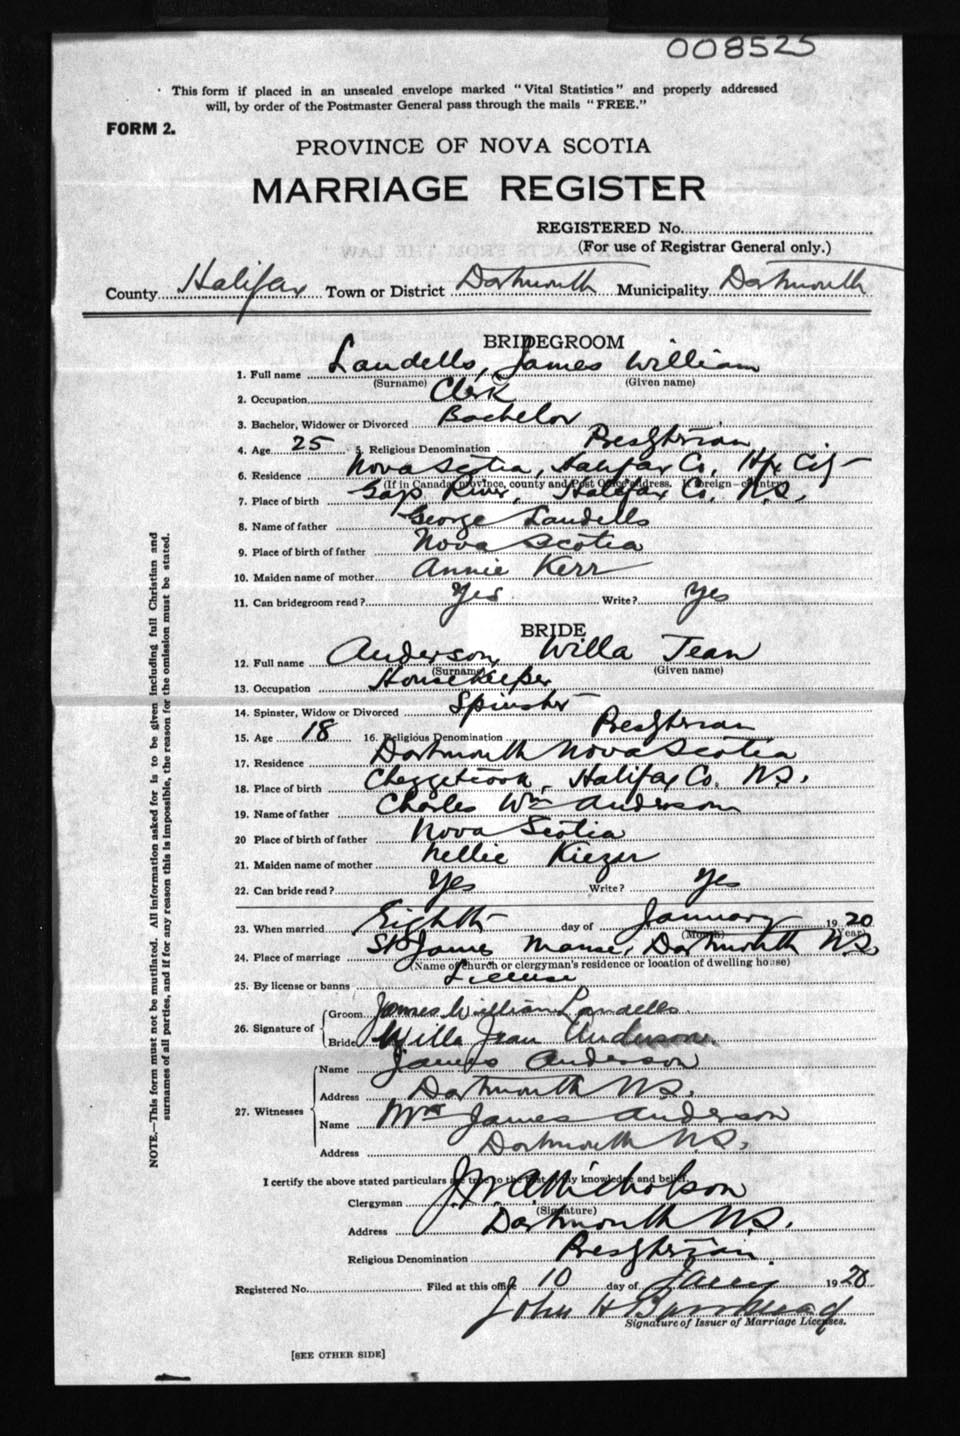 008525
This form if placed in an unsealed envelope marked "Vital Statistics" and properly addressed
will, by order of the Postmaster General pass through the mails "FREE."
FORM 2.
PROVINCE OF NOVA SCOTIA
MARRIAGE REGISTER
REGISTERED No.
(For use of Registrar General only.)
County Halifax Town or District Dartmouth Municipality Dartmouth
BRIDEGROOM
1. Full name Landells, James William
(Surname) (Given name)
2. Occupation Clerk
3. Bachelor, Widower or Divorced Bachelor
4. Age 25 5. Religious Denomination Presbterian
6. Residence Nova Scotia, Halifax Co, Hfx City
(If in Canada, province, county and Post Office address. If foreign—country)
7. Place of birth Gays River, Halifax Co. N.S.
8. Name of father George Landells
9. Place of birth of father Nova Scotia
10. Maiden name of mother Annie Kerr
11. Can bridegroom read? Yes Write? Yes
BRIDE
12. Full name Anderson, Willa Jean
(Surname) (Given name)
13. Occupation Housekeeper
14. Spinster, Widow or Divorced Spinster
15. Age 18 16. Religious Denomination Presbterian
17. Residence Dartmouth Nova Scotia
18. Place of birth Halifax Co. N.S.
19. Name of father Charles Wm Anderson
20 Place of birth of father Nova Scotia
21. Maiden name of mother Nellie Kiezer
22. Can bride read? Yes Write? Yes
23. When married Eighth day of January 1920
(Month) (Year)
24. Place of marriage St James Manse, Dartmouth N.S.
(Name of church or clergyman's residence or location of dwelling house)
25. By license or banns License
26. Signature of Groom James William Landells
Bride Willa Jean Anderson
27. Witnesses Name James Anderson
Address Dartmouth N.S.
Name Mrs James Anderson
Address Dartmouth N.S.
I certify the above stated particulars are true to the best of my knowledge and belief.
Clergyman Nicholson
(Signature)
Address Dartmouth N.S.
Religious Denomination Presbterian
Registered No. Filed at this office 10 day of Jany 1920
John H
Signature of Issuer of Marriage Licenses.
[SEE OTHER SIDE]
NOTE.—This form must not be mutilated. All information asked for is to be given including full Christian and
surnames of all parties, and if for any reason this is impossible, the reason for the omission must be stated.